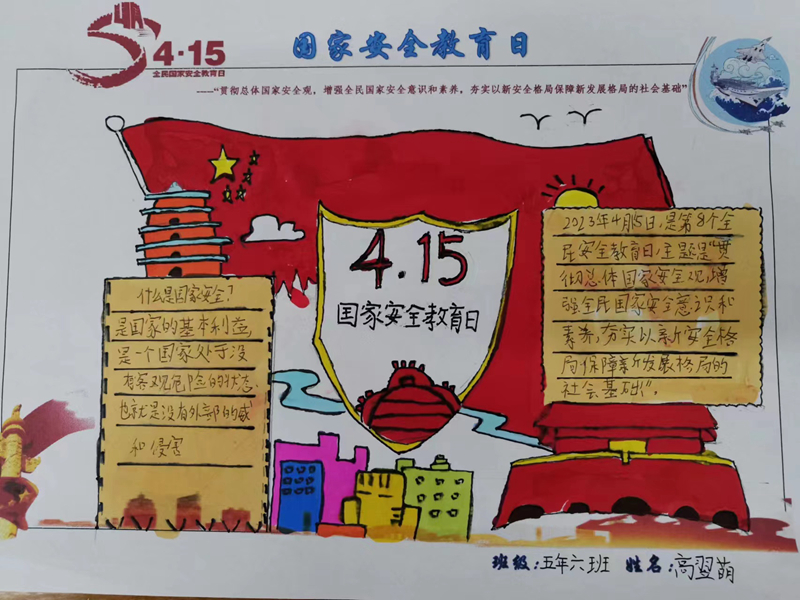 4·15
全民国家安全教育日
国家安全教育日
----“贯彻总体国家安全观，增强全民国家安全意识和素养，夯实以新安全格局保障新发展格局的社会基础”
4.15
国家安全教育日
什么是国家安全?
是国家的基本利益,
是一个国家处于没
有客观危险的状态.
也就是没有外部的威
和侵害
2023年4月15日,是第8个全
民安全教育日,主题是“贯
彻总体国家安全观,增
强全民国家安全意识和
素养,夯实以新安全格
局保障新发展格局的
社会基础”.
班级:五年六班 姓名:高翌萌